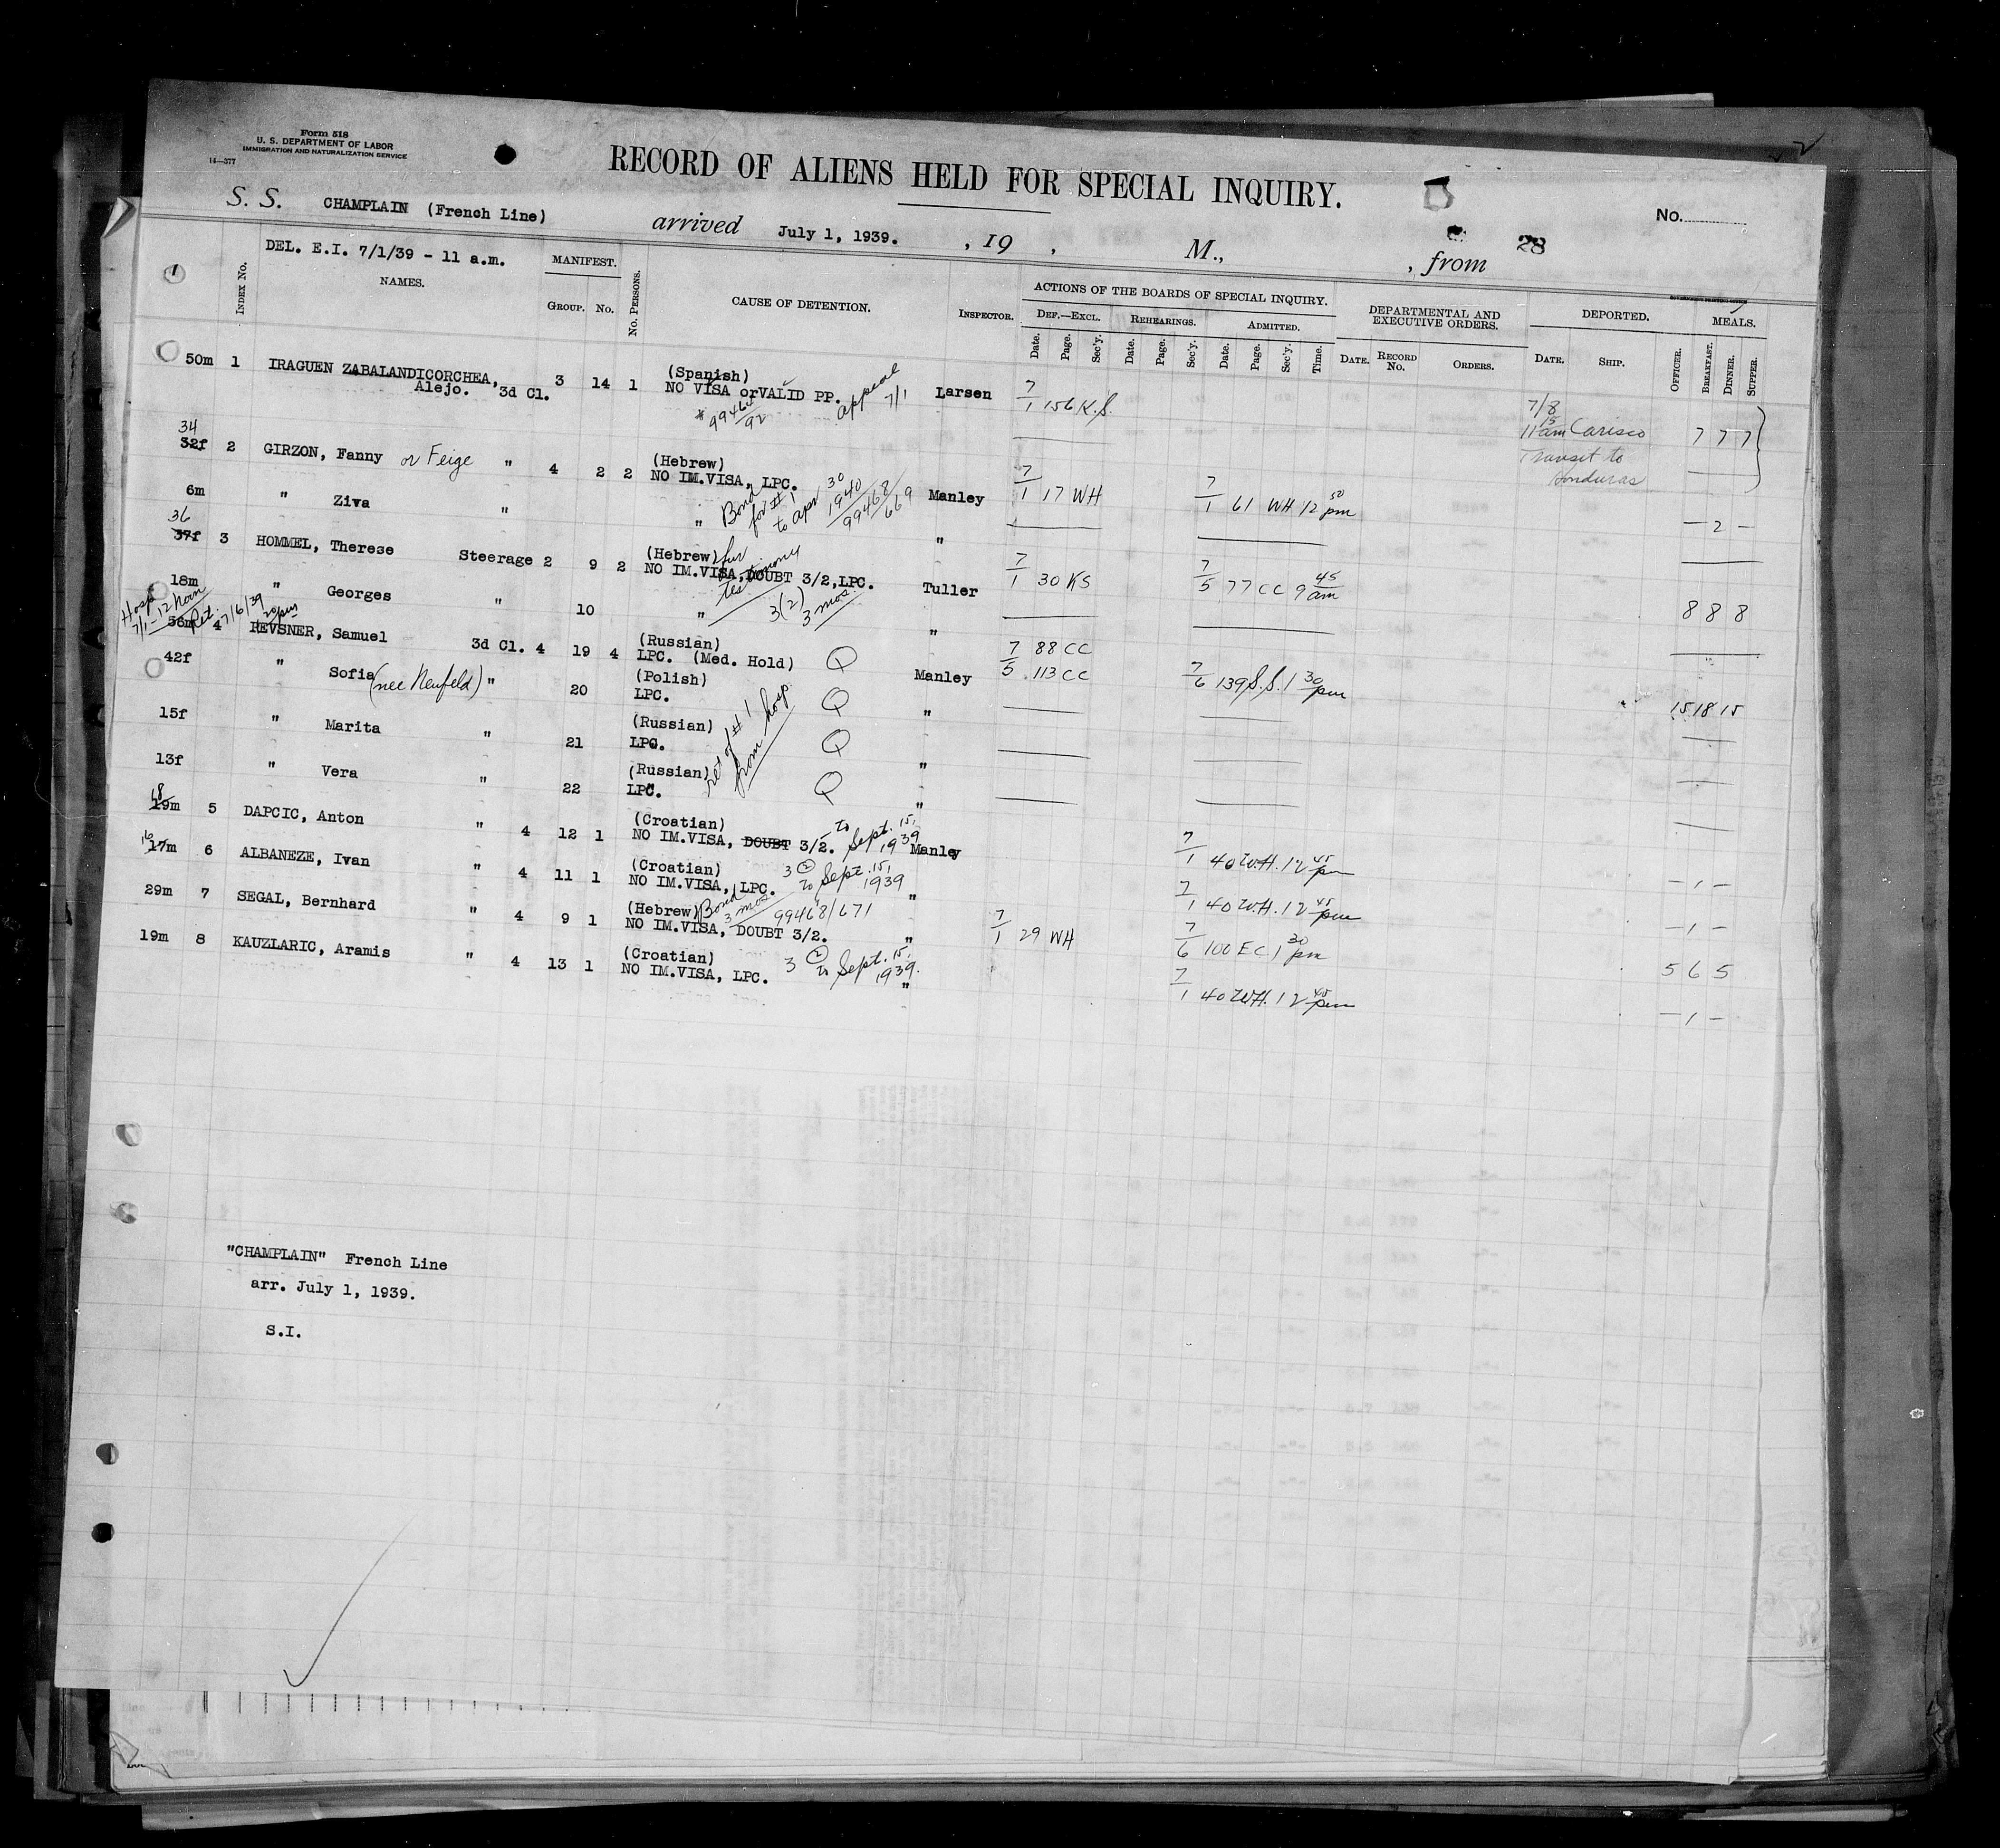 Form 518
U. S. DEPARTMENT OF LABOR
IMMIGRATION AND NATURALIZATION SERVICE
14—377
RECORD OF ALIENS HELD FOR SPECIAL INQUIRY.
No.
S. S. CHAMPLAIN (French Line) arrived July 1, 1939. , 19 , M., , from 28
DEL. E.I. 7/1/39 - 11 a.m.
INDEX No. NAMES. MANIFEST. GROUP. No. No. PERSONS. CAUSE OF DETENTION. INSPECTOR.
ACTIONS OF THE BOARDS OF SPECIAL INQUIRY. DEPARTMENTAL AND EXECUTIVE ORDERS. DEPORTED. MEALS.
DEF.—EXCL. REHEARINGS. ADMITTED.
Date. Page. Sec'y. Date. Page. Sec'y. Date. Page. Sec'y. Time. DATE. RECORD No. ORDERS. DATE. SHIP. OFFICER. BREAKFAST. DINNER. SUPPER.
1
50m 1 IRAGUEN ZABALANDICORCHEA, Alejo. 3d Cl. 3 14 1 (Spanish)
NO VISA or VALID PP. appeal 7/1 Larsen 7/1 156 K.S.
#99464/92
7/8 11 15 am Carisco 7 7 7
Transit to Honduras
34
32f 2 GIRZON, Fanny or Feige " 4 2 2 (Hebrew)
NO IM.VISA, LPC. Manley 7/1 17 WH 7/1 61 WH 12 50 pm — 2 —
Bond for #1 to apr 30 1940 99468/669
6m " Ziva " " "
36
37f 3 HOMMEL, Therese Steerage 2 9 2 (Hebrew)
NO IM.VISA, DOUBT 3/2, LPC. Tuller 7/1 30 KS 7/5 77 CC 9 45 am 8 8 8
fur testimony
18m " Georges " 10 " 3(2) 3 mos. "
Hosp 7/1-12 Noon Ret. 7/6/39
56m 4 REVSNER, Samuel 3d Cl. 4 19 4 (Russian)
LPC. (Med. Hold) Q Manley 7/5 88 CC 113 CC 7/6 139 S.S. 1 30 pm 15 18 15
42f " Sofia (nee Neufeld) " 20 (Polish)
LPC. Q "
ret of #1 from hosp.
15f " Marita " 21 (Russian)
LPC. Q "
13f " Vera " 22 (Russian)
LPC. Q "
18
19m 5 DAPCIC, Anton " 4 12 1 (Croatian)
NO IM.VISA, DOUBT 3/2. to Sept. 15, 1939 Manley 7/1 40 W.H. 12 45 pm — 1 —
16
17m 6 ALBANEZE, Ivan " 4 11 1 (Croatian)
NO IM.VISA, LPC. 3 (2) to Sept. 15, 1939 " 7/1 40 W.H. 12 45 pm — 1 —
29m 7 SEGAL, Bernhard " 4 9 1 (Hebrew) Bond 3 mos. 99468/671
NO IM.VISA, DOUBT 3/2. " 7/1 29 WH 7/6 100 EC 1 30 pm 5 6 5
19m 8 KAUZLARIC, Aramis " 4 13 1 (Croatian)
NO IM.VISA, LPC. 3 (2) to Sept. 15, 1939. " 7/1 40 W.H. 12 45 pm — 1 —
"CHAMPLAIN" French Line
arr. July 1, 1939.
S.I.